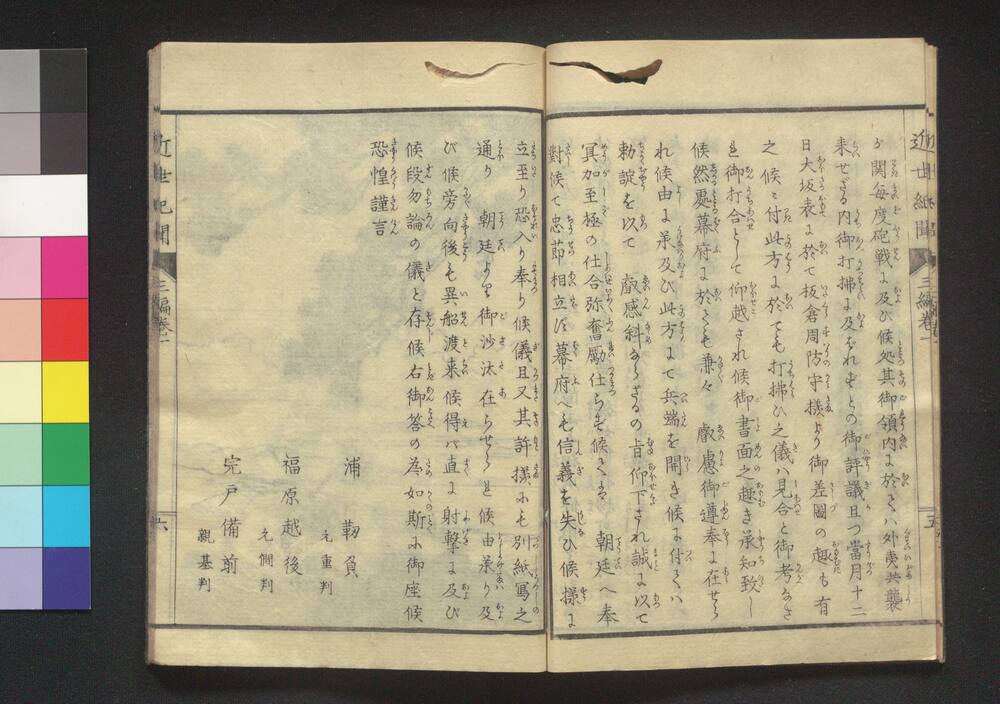 近世紀聞
三編巻一
五
ガ関毎度砲戦に及び候処其御領内に於てハ外夷共襲
来せざる内御打拂に及ばれずとの御評議且つ當月十二
日大坂表に於て板倉周防守様より御差圖の趣も有
之候に付此方に於ても打拂ひ之儀ハ見合と御考なさ
れ御打合として仰越され候御書面之趣き承知致し
候然處幕府に於ても兼々　叡慮御遵奉に在せら
れ候由に承及び此方にて兵端を開き候に付てハ
勅諚を以て　叡感斜ならざるの旨仰下され誠に以て
冥加至極の仕合弥奮勵仕らず候てハ　朝廷へ奉
對候て忠節相立ず幕府へも信義を失ひ候様に
立至り恐入り奉り候儀且又其許様にも別紙寫之
通り　朝廷より御沙汰在らせられ候由承り及
び候旁向後も異船渡来候得バ直に射撃に及び
候段勿論の儀と存候右御答の為如斯に御座候
恐惶謹言
浦　靱負
元重判
福原越後
元僴判
宍戸備前
親基判
近世紀聞
三編巻一
六